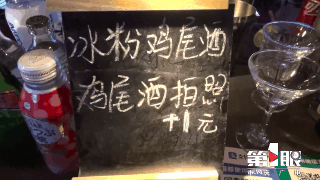 冰粉鸡尾酒
鸡尾酒拍照
+1元
第1眼